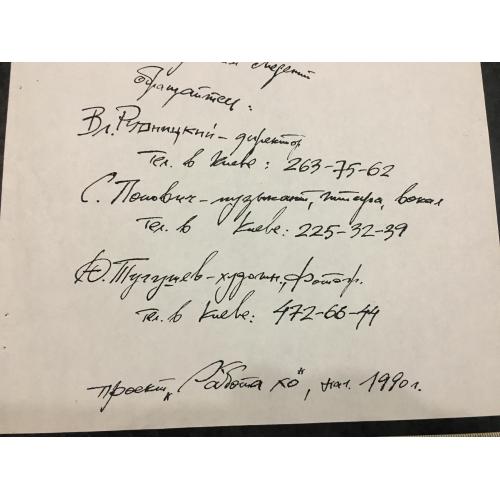 сведений
обращайтесь:
Вл. Рудницкий – директор
Тел. в Киеве: 263-75-62
С. Попович – музыкант, гитара, вокал
Тел. в Киеве: 225-32-39
Ю. Тугушев – художн., фотогр.
Тел. в Киеве: 472-66-44
проект „Работа хо", нач. 1990 г.